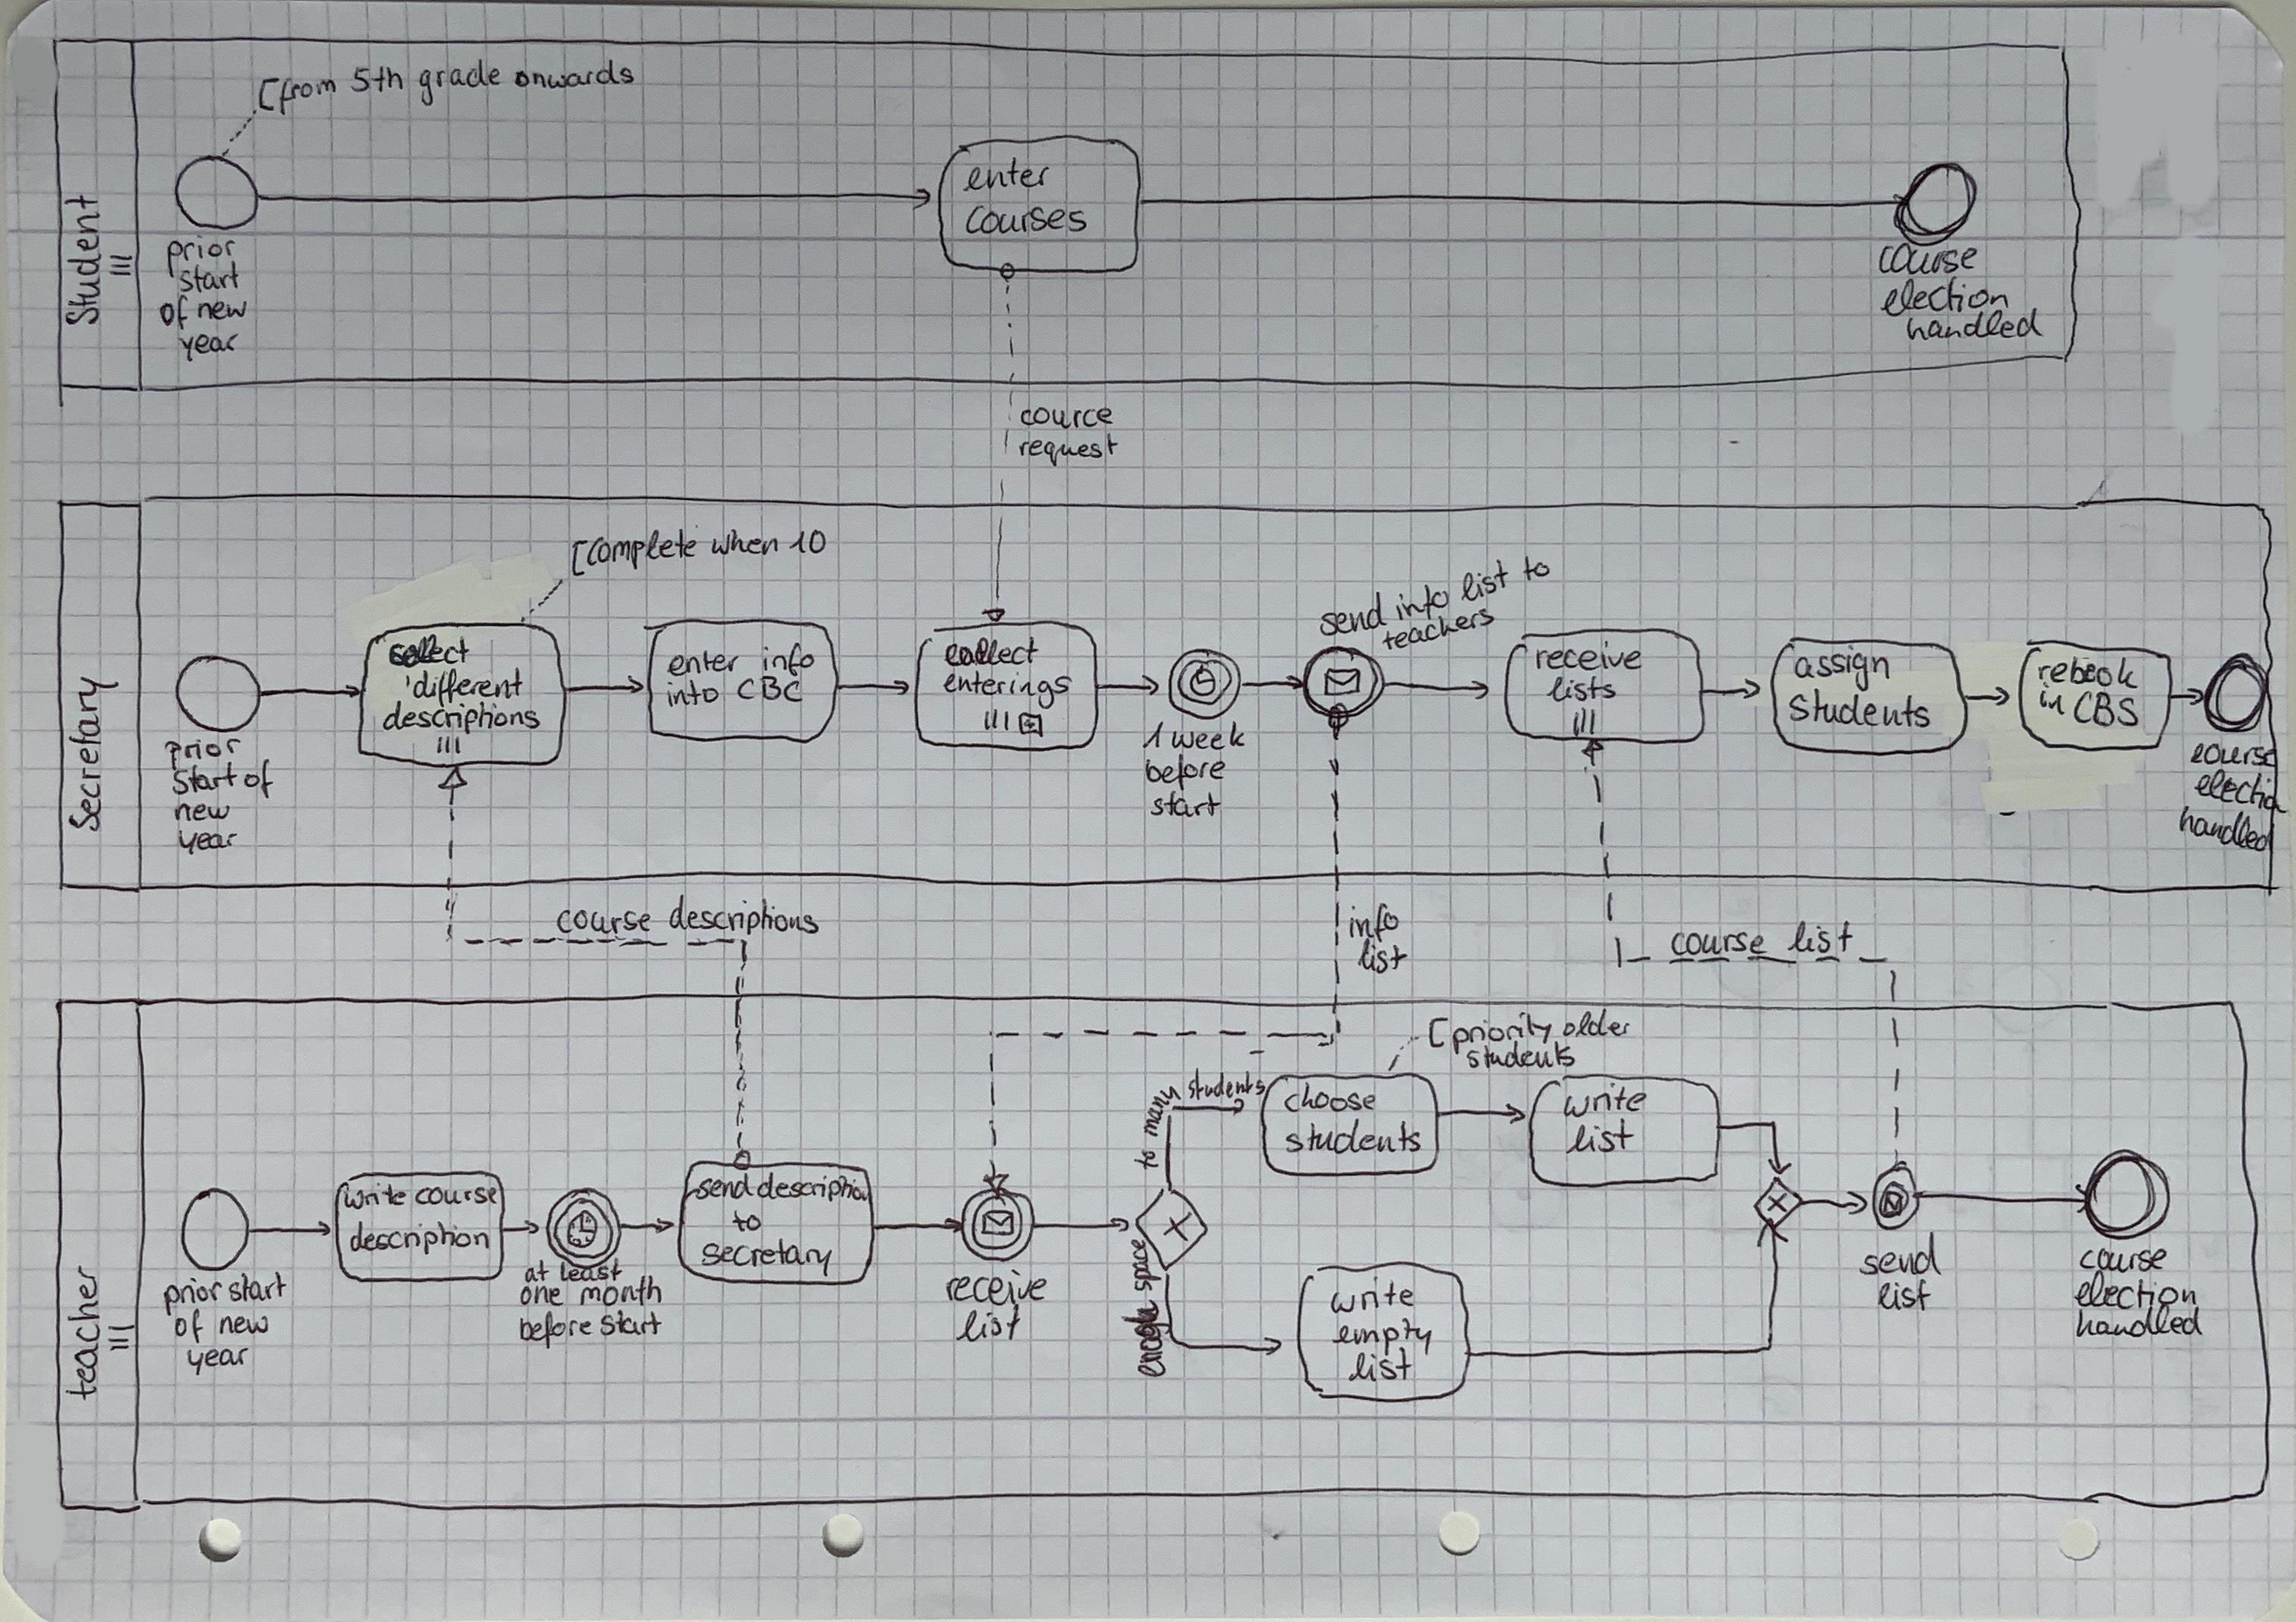 Student
[from 5th grade onwards
prior
start
of new
year
enter
courses
course
election
handled
cource
request
Secretary
prior
start of
new
year
[complete when 10
different
descriptions
enter info
into CBC
collect
enterings
1 week
before
start
send info list to
teachers
receive
lists
assign
students
rebook
in CBS
course
election
handled
course descriptions
info
list
course list
teacher
prior start
of new
year
write course
description
at least
one month
before start
send description
to
secretary
receive
list
to many students
enough space
[priority older
students
choose
students
write
list
write
empty
list
send
list
course
election
handled